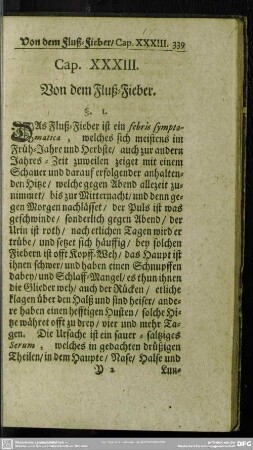 Von dem Fluß-Fieber/ Cap. XXXIII. 339
Cap. XXXIII.
Von dem Fluß-Fieber.
§. 1.
DAs Fluß-Fieber ist ein febris sympto-
matica, welches sich meistens im
Früh-Jahre und Herbste/ auch zur andern
Jahres-Zeit zuweilen zeiget mit einem
Schauer und darauf erfolgender anhalten-
den Hitze/ welche gegen Abend allezeit zu-
nimmet/ bis zur Mitternacht/ und denn ge-
gen Morgen nachlässet/ der Puls ist was
geschwinde/ sonderlich gegen Abend/ der
Urin ist roth/ nach etlichen Tagen wird er
trübe/ und setzet sich häuffig/ bey solchen
Fiebern ist offt Kopff-Weh/ das Haupt ist
ihnen schwer/ und haben einen Schnupffen
dabey/ und Schlaff-Mangel/ es thun ihnen
die Glieder weh/ auch der Rücken/ etliche
klagen über den Halß und sind heiser/ ande-
re haben einen hefftigen Husten/ solche Hi-
tze währet offt zu drey/ vier und mehr Ta-
gen. Die Ursache ist ein sauer-saltziges
Serum, welches in gedachten drüßigen
Theilen/ in dem Haupte/ Nase/ Halse und
Y 2 Lun-